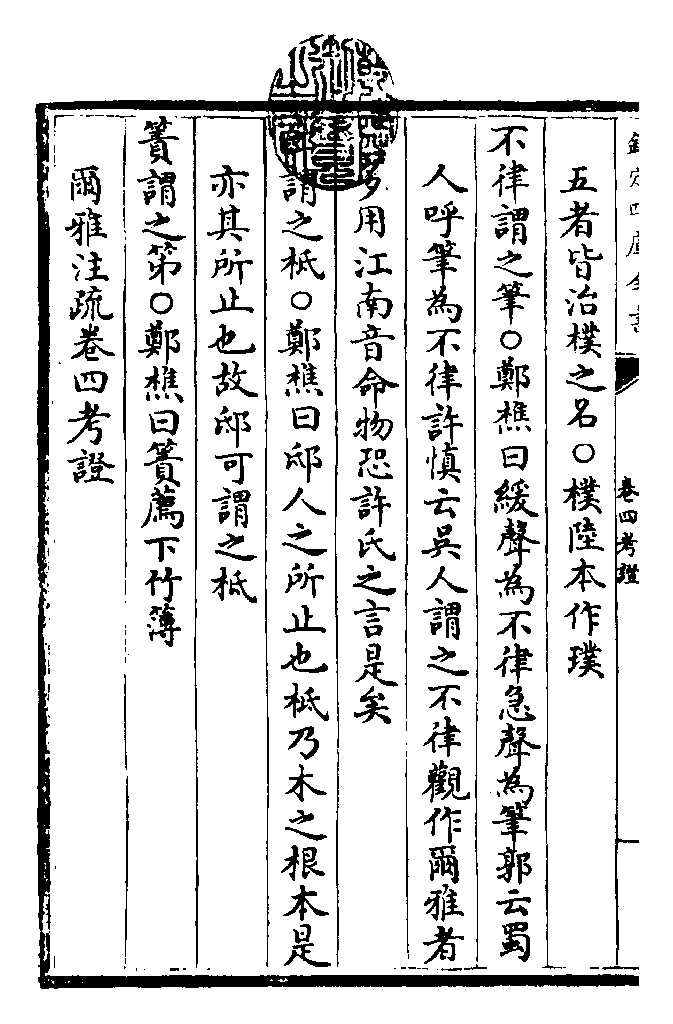 欽定四庫全書
卷四考證
五者皆治樸之名○樸陸本作璞
不律謂之筆○鄭樵曰緩聲為不律急聲為筆郭云蜀
人呼筆為不律許慎云吳人謂之不律觀作爾雅者
多用江南音命物恐許氏之言是矣
謂之柢○鄭樵曰邸人之所止也柢乃木之根本是
亦其所止也故邸可謂之柢
簀謂之第○鄭樵曰簀薦下竹簿
爾雅注疏卷四考證